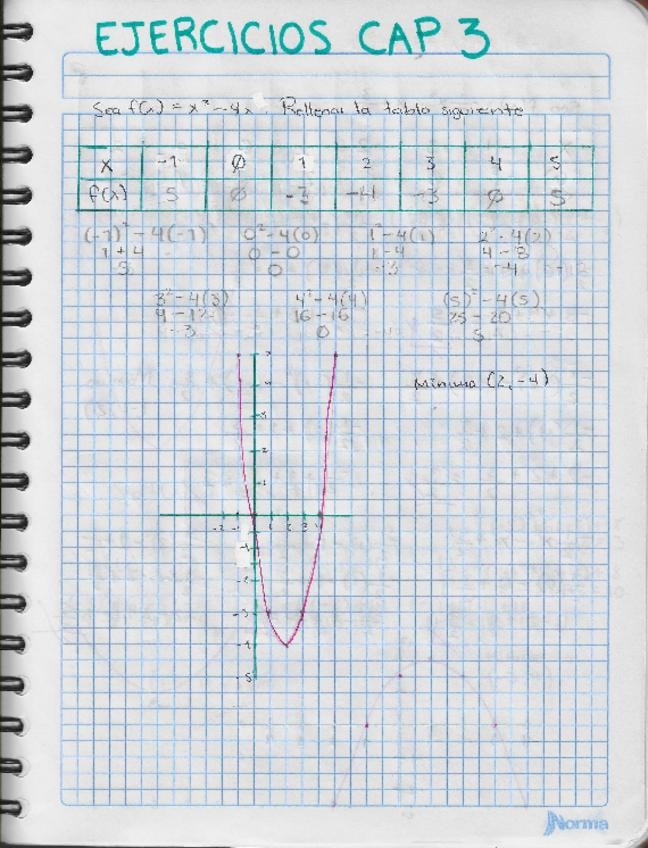 EJERCICIOS CAP 3
Sea f(x) = x² - 4x. Rellenar la tabla siguiente
x -1 0 1 2 3 4 5
f(x) 5 0 -3 -4 -3 0 5
(-1)² - 4(-1) 0² - 4(0) 1² - 4(1) 2² - 4(2)
1 + 4 0 - 0 1 - 4 4 - 8
5 0 -3 -4
3² - 4(3) 4² - 4(4) (5)² - 4(5)
9 - 12 16 - 16 25 - 20
-3 0 5
Minimo (2, -4)
5
4
3
2
1
-2 -1 1 2 3 4
-1
-2
-3
-4
-5
Norma